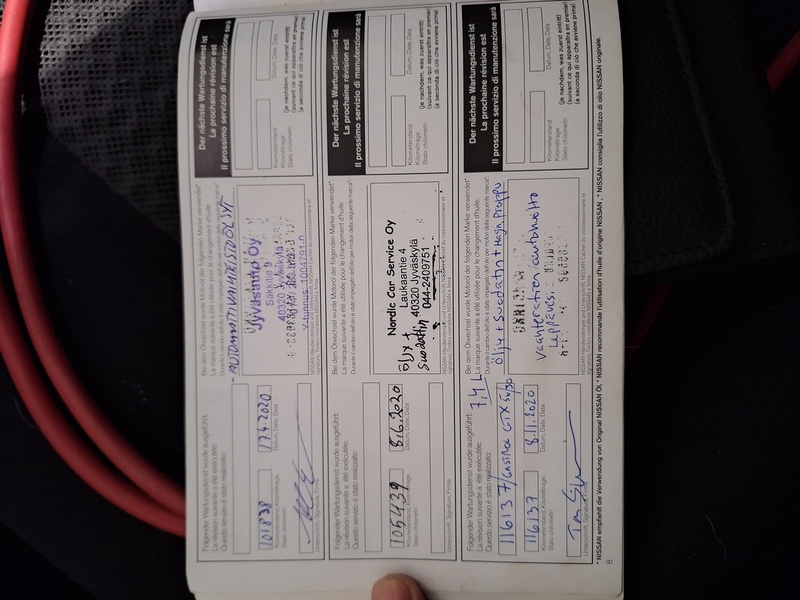 Folgender Wartungsdienst wurde ausgeführt:
La révision suivante a été exécutée:
Questo servizio è stato realizzato:
101838
17.4.2020
Kilometerstand
Kilométrage
Stato chilometri
Datum, Date, Data
Unterschrift, Signature, Firma
Bei dem Ölwechsel wurde Motoröl der folgenden Marke verwendet*:
La marque suivante a été utilisée pour le changement d'huile:
Durante il cambio dell'olio è stato impiegato dell'olio per motori della seguente marca*:
Jyväshihip Oy
40320 Jyväskylä
Y-tunnus:
Der nächste Wartungsdienst ist
La prochaine révision est
Il prossimo servizio di manutenzione sarà
Kilometerstand
Kilométrage
Stato chilometri
Datum, Date, Data
(je nachdem, was zuerst eintritt)
(suivant ce qui apparaîtra en premier)
(a seconda di ciò che avviene prima)
Folgender Wartungsdienst wurde ausgeführt:
La révision suivante a été exécutée:
Questo servizio è stato realizzato:
105439
8.6.2020
Kilometerstand
Kilométrage
Stato chilometri
Datum, Date, Data
Unterschrift, Signature, Firma
Bei dem Ölwechsel wurde Motoröl der folgenden Marke verwendet*:
La marque suivante a été utilisée pour le changement d'huile:
Durante il cambio dell'olio è stato impiegato dell'olio per motori della seguente marca*:
Nordic Car Service Oy
Laukaantie 4
40320 Jyväskylä
044-2409751
öljy +
Suodatin
Der nächste Wartungsdienst ist
La prochaine révision est
Il prossimo servizio di manutenzione sarà
Kilometerstand
Kilométrage
Stato chilometri
Datum, Date, Data
(je nachdem, was zuerst eintritt)
(suivant ce qui apparaîtra en premier)
(a seconda di ciò che avviene prima)
Folgender Wartungsdienst wurde ausgeführt:
La révision suivante a été exécutée:
Questo servizio è stato realizzato:
7,4 L
116137/Castrol GTX 5w30
116137
8.11.2020
Kilometerstand
Kilométrage
Stato chilometri
Datum, Date, Data
Unterschrift, Signature, Firma
Bei dem Ölwechsel wurde Motoröl der folgenden Marke verwendet*:
La marque suivante a été utilisée pour le changement d'huile:
Durante il cambio dell'olio è stato impiegato dell'olio per motori della seguente marca*:
Öljy + Suodatin + Magn. proppu
Vaahteratien autohuolto
Leppävesi
Der nächste Wartungsdienst ist
La prochaine révision est
Il prossimo servizio di manutenzione sarà
Kilometerstand
Kilométrage
Stato chilometri
Datum, Date, Data
(je nachdem, was zuerst eintritt)
(suivant ce qui apparaîtra en premier)
(a seconda di ciò che avviene prima)
* NISSAN empfiehlt die Verwendung von Original NISSAN Öl. * NISSAN recommande l'utilisation d'huile d'origine NISSAN. * NISSAN consiglia l'utilizzo di olio NISSAN originale.
8